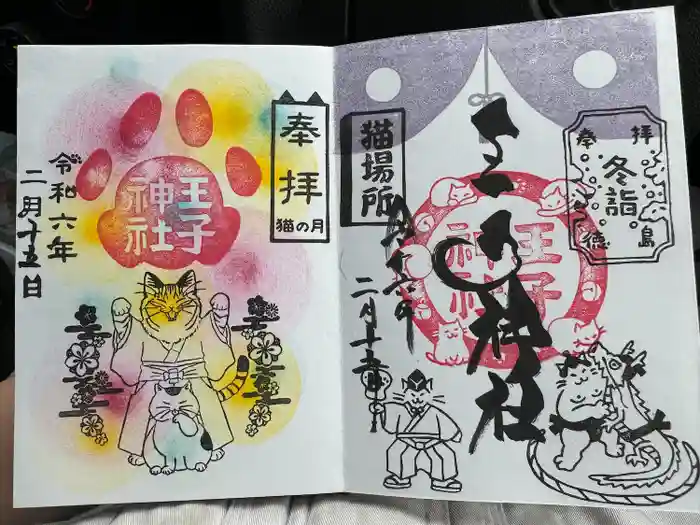 奉拝
猫の月
王子
神社
令和六年
二月十五日
奉拝
冬詣
徳島
王子神社
猫場所
王子
神社
令和六年
二月十五日